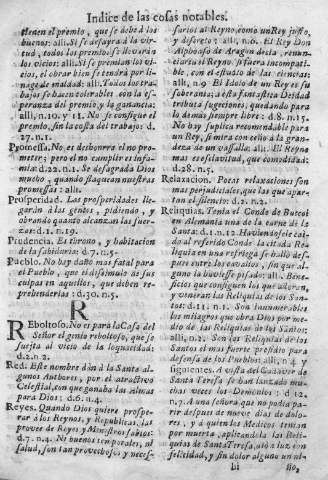 Indice de las cosas notables.
tienen el premio, que se debe à los
buenos: alli. Si se desayra à la vir-
tud, todos los premios se llevarán
los vicios: alli. Si se premian los vi-
cios, el obrar bien se tendrà por li-
nage de maldad: alli. Todos los tra-
bajos se hazen tolerables con la es-
peranza del premio y la ganancia:
alli, n. 10. y 11. No se consigue el
premio, sin la costa del trabajo: d.
27. n. 1.
Promessa. No es deshonrra el no pro-
meter; pero el no cumplir es infa-
mia: d. 22. n. 1. Se desagrada Dios
mucho, quando flaquean nuestras
promessas: alli.
Prosperidad. Las prosperidades llegan
à los otros, pidiendo, y
orando quando alcanzan las fuer-
zas: d. 1. n. 19.
Prudencia. Es throno, y habitacion
de la sabiduria: d. 7. n. 5.
Pueblo. No hay daño mas fatal para
el Pueblo, que el dissimulo de sus
culpas en aquellos, que deben re-
prehenderlas: d. 30. n. 5.
R
Reboltoso. No es para la Casa del
Señor el genio reboltoso, que se
sujeta al vicio de la loquacidad:
d. 2. n. 2.
Red. Este nombre dàn à la Santa al-
gunos Authores, por el atractivo
Celestial, con que ganaba las almas
para Dios: d. 6. n. 4.
Reyes. Quando Dios quiere prospe-
rar à los Reynos, y Republicas, las
provee de Reyes y Ministros sabios:
d. 7. n. 4. Ni buenos temporales, ni
salud, son tan provechosos y neces-
sarios al Reyno, como un Rey justo,
y discreto: alli, n. 6. El Rey Don
Alphonso de Aragon decia, renun-
ciaria al Reyno, si fuera incompati-
ble, con el estudio de las ciencias:
alli, n. 9. El Idolo de un Rey es su
soberania; à esta fantastica Deidad
tributa sugeciones, quedando para
lo demàs siempre libre: d. 8. n. 15.
No hay suplica recomendable para
un Rey, si mira con ceño à la gran-
deza de un vassallo: alli. El Reyno
mas es esclavitud, que comodidad:
d. 28. n. 5.
Relaxacion. Pocas relaxaciones son
mas perjudiciales, que las que apar-
tan el silencio: d. 2. n. 2.
Reliquias. Tenia el Conde de Bucoi
en Alemania una de la carne de la
Santa: d. 1. n. 12. Haviendosele cai-
do al referido Conde la citada Re-
liquia en una refriega se hallò des-
pues entre los cavallos, sin que al-
guno la huviesse pisado: alli. Bene-
ficios que consiguen los que adoran,
y veneran las Reliquias de los San-
tos: d. 11. n. 1. Son innumerables
los milagros que obra Dios por me-
dio de las Reliquias de los Santos:
alli, n. 2. Son las Reliquias de los
Santos el mas fuerte presidio para
defensa de los Pueblos: alli, n. 4. y
siguientes. A vista del Cadaver de
Santa Teresa se han lanzado mu-
chas veces los Demonios: d. 12.
n. 2. A una señora que no podia pa-
rir despues de nueve dias de dolo-
res, y à quien los Medicos tenian
por muerta, aplicandola las Reli-
quias de Santa Teresa, diò à luz con
felicidad, y sin dolor alguno un ni-
Ii
ño,